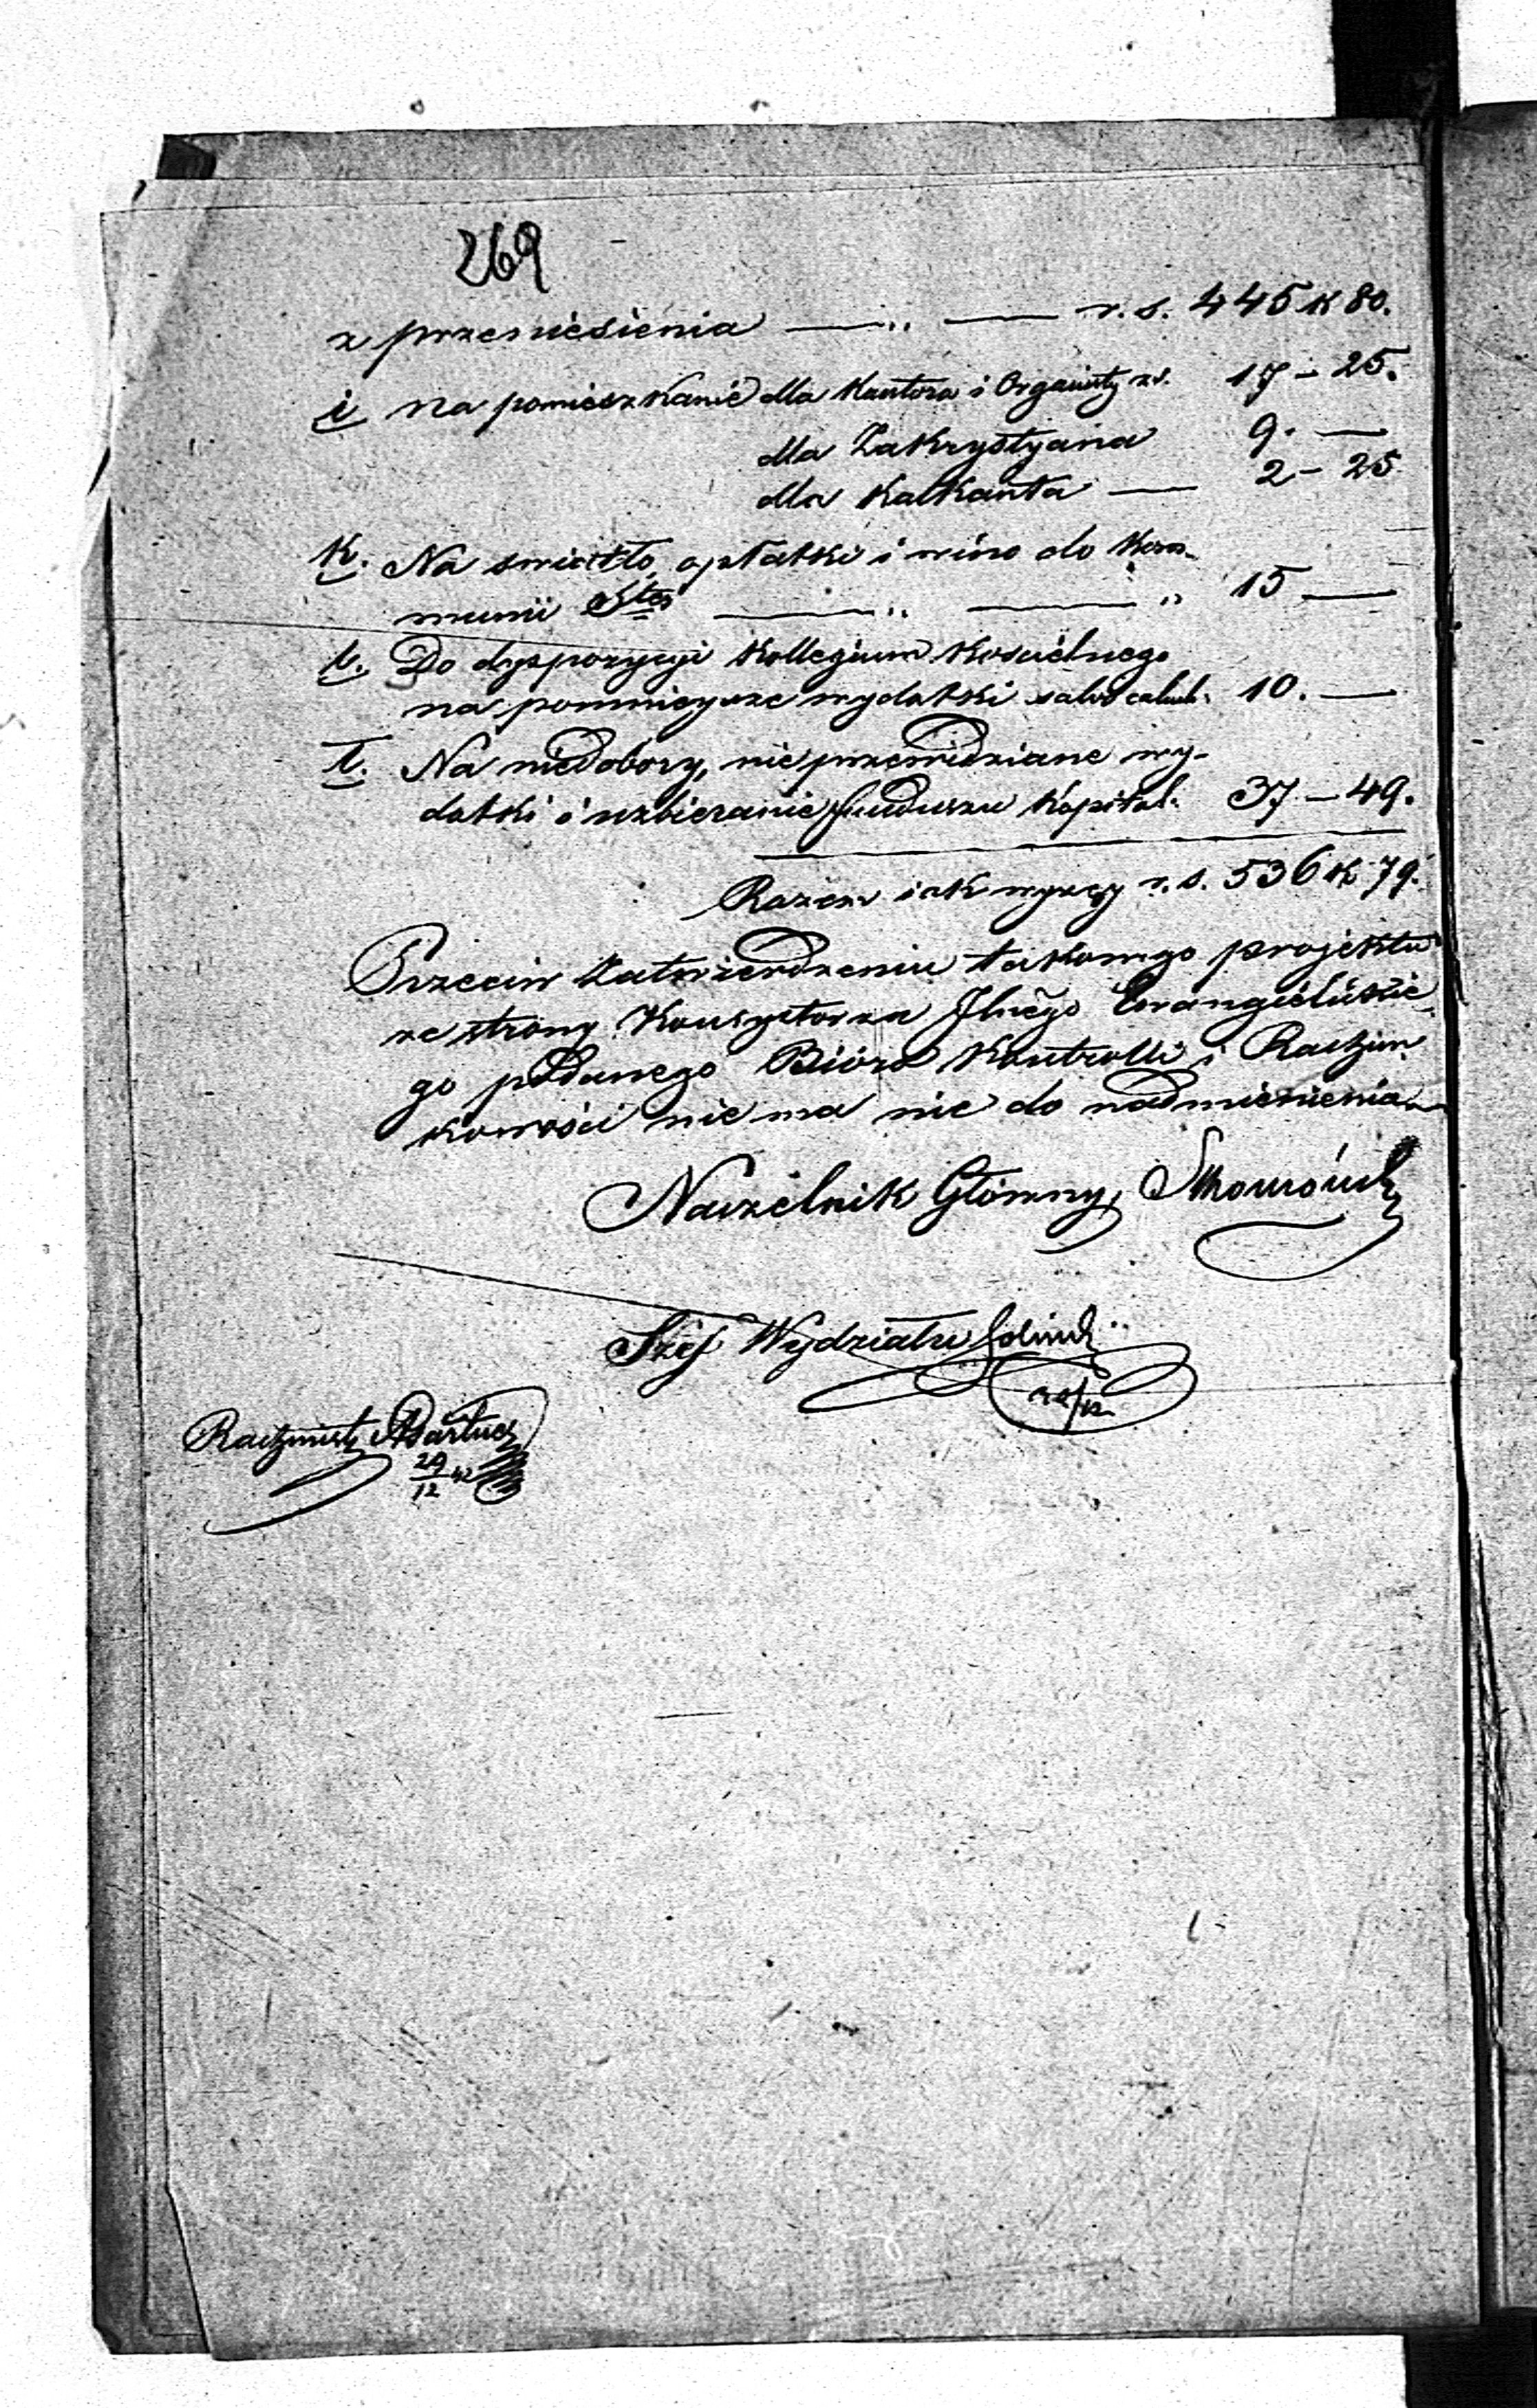 269
z przeniesienia — „ — r. s. 445 k 80.
i na pomieszkanie dla Kantora i Organisty rs. 17 – 25.
dla Zakrystyana 9. —
dla Kalkanta — 2 – 25
k. Na swiatło, opłatki i wino do Kom-
munii Stej — „ — „ 15 —
l. Do dyspozycyi Kollegium Koscielnego
na pomnieysze wydatki salvo calculo 10. —
ł. Na niedobory, nieprzewidziane wy-
datki i uzbieranie funduszu Kapitał. 37 – 49.
Razem iak wyzey r. s. 536 k 79.
Przeciw Zatwierdzeniu takowego projektu
ze strony Konsystorza Jlnego Ewangielickie-
go podanego Bióro Kontrolli i Rachun-
kowości nie ma nic do nadmienienia
Naczelnik Główny,
Szef Wydziału
Rachmistrz
29/12 42